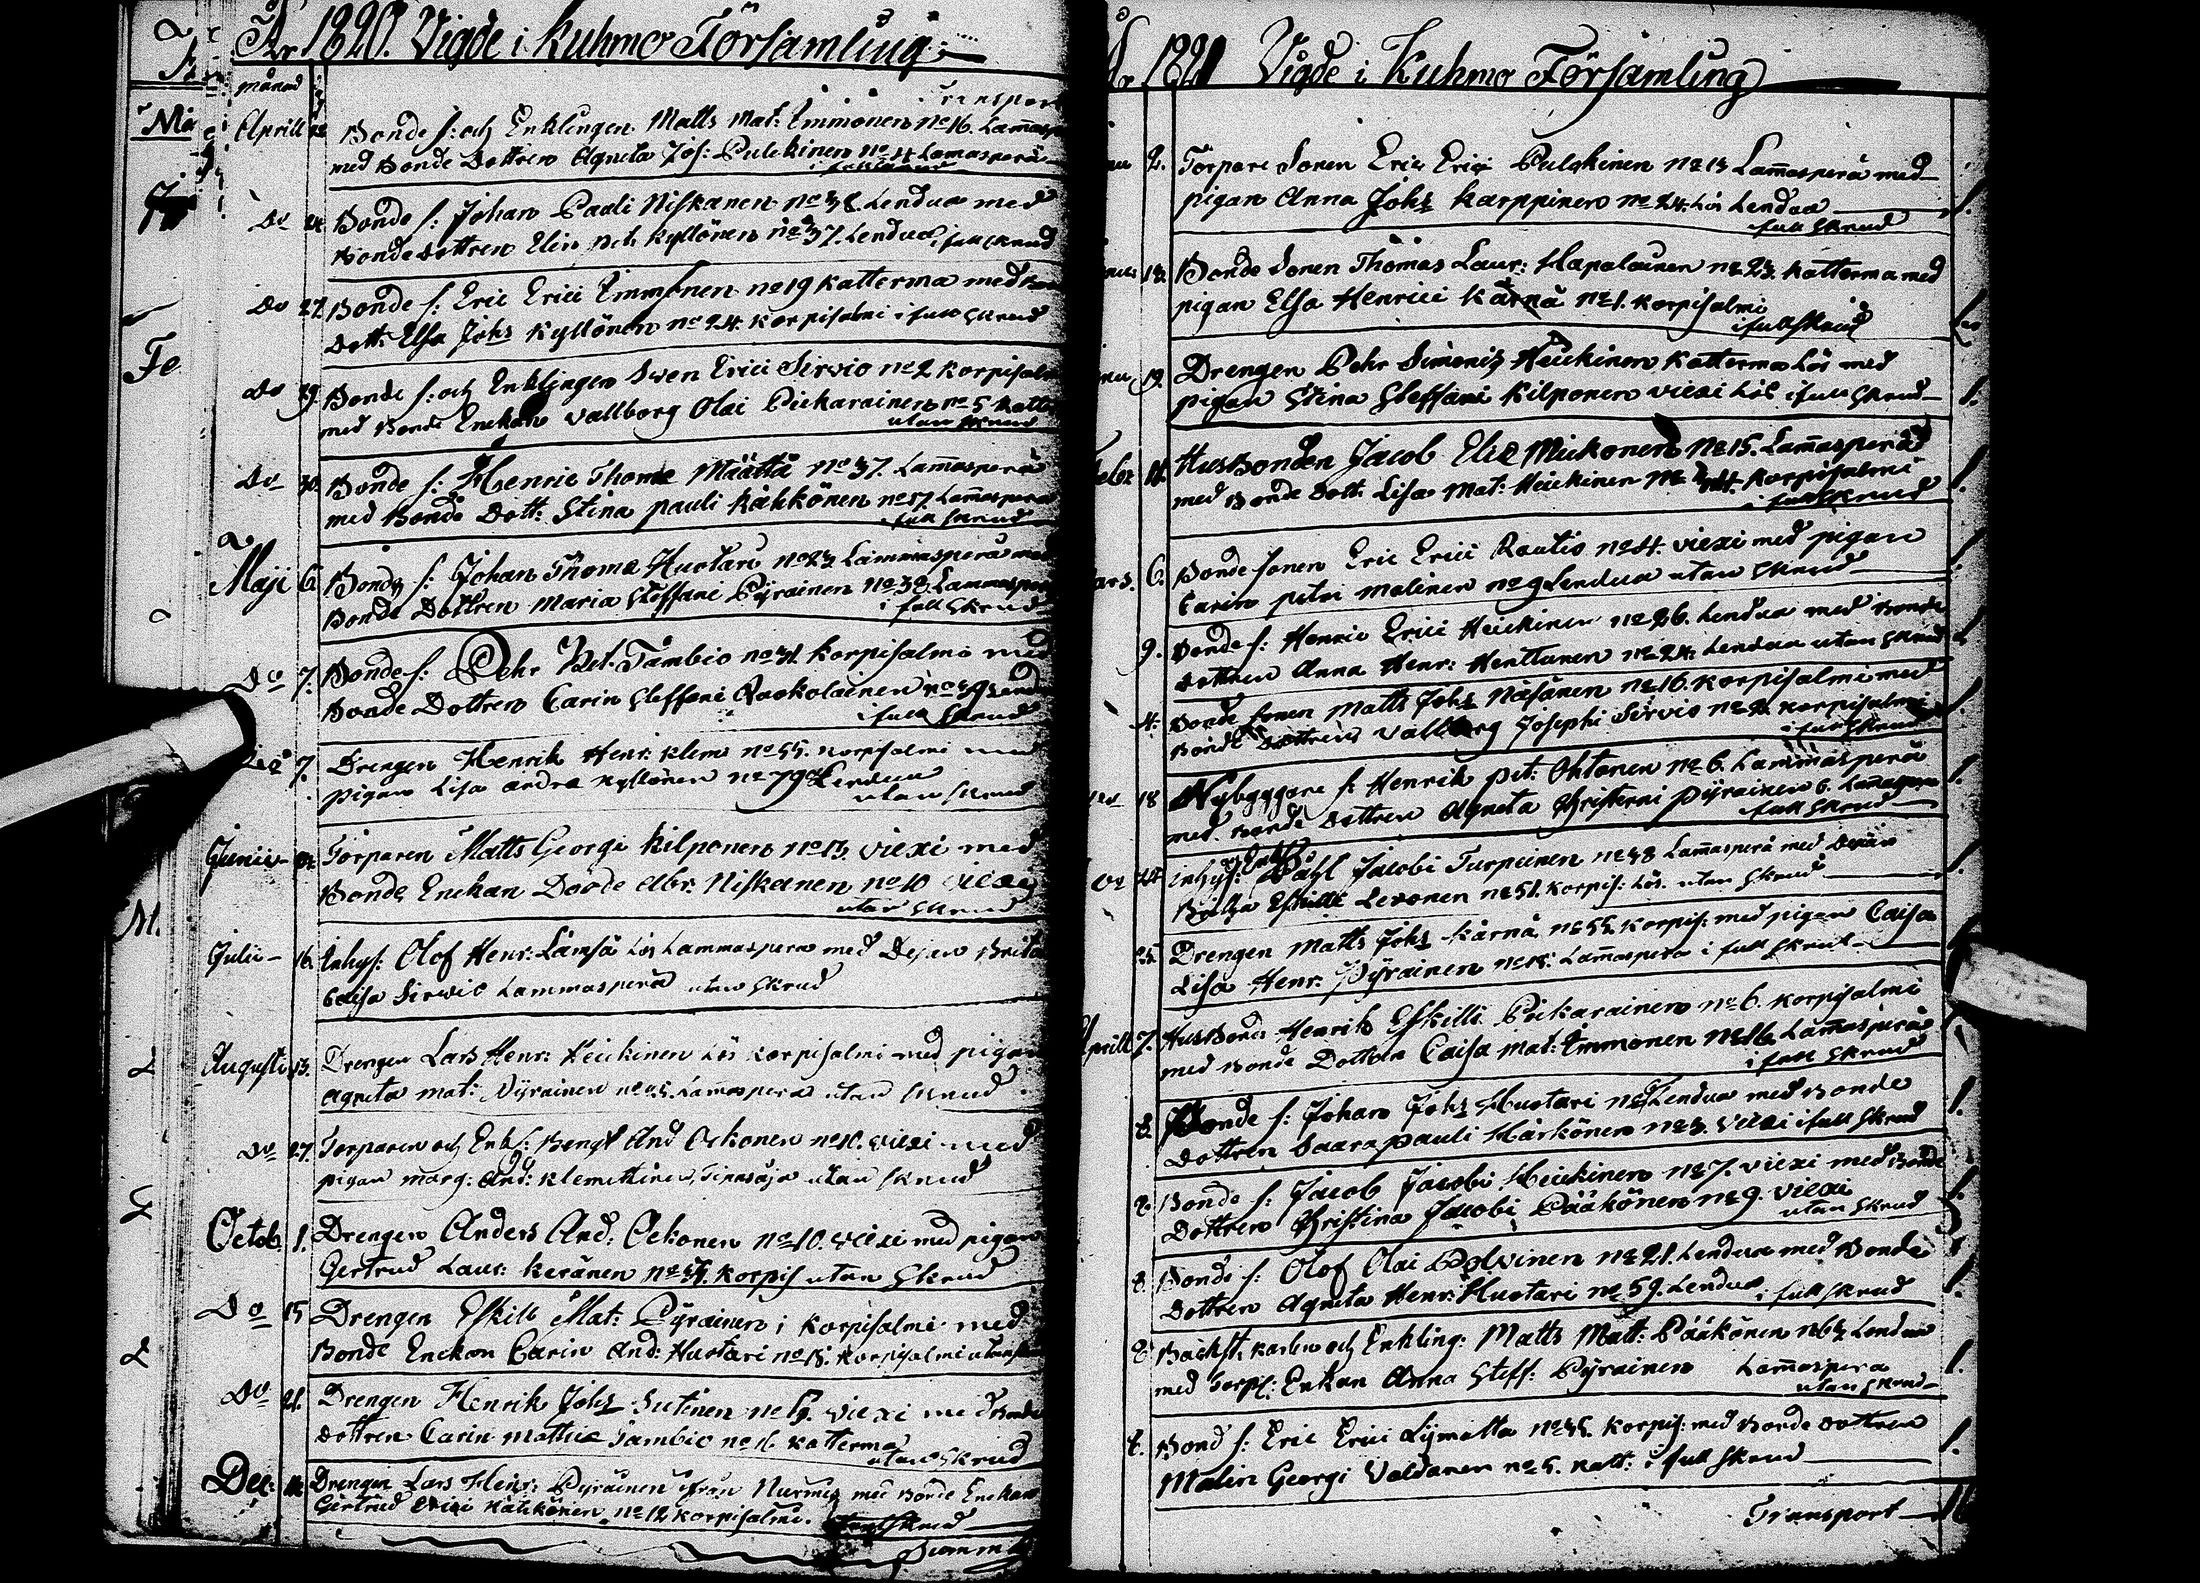 År 1820. Vigde i Kuhmo Församling
månad
Transport
Aprill Bonde s: och Enklingen Matts Mat: Immonen No 16. Lam̅asp
med Bonde Dottren Agneta Jos: Pulckinen No 4 Lamasperä
i full skrud
Do Bonde s: Johan Pauli Niskanen No 38. Lendua med
Bonde dottren Elin Kyllönen No 37. Lendua i full skrud
Do 27. Bonde s: Eric Erici Immonen No 19 Katterma med
Dott: Elsa Johs Kyllönen No 24. Korpisalmi i full skrud
Do 29. Bonde s: och Enklingen Swen Erici Sirviö No 2 Korpisalm
med Bonde Enckan Vallborg Olai Pickarainen No 5 Katt
utan skrud
Do 30. Bonde s: Henric Thomæ Määttä No 37. Lam̅asperä
med Bonde Dott: Stina pauli Kähkönen No 57 Lam̅aspera
i full skrud
Maji 6. Bonde s: Johan Thomæ Huotari No 23 Lammasperä med
Bonde Dottren Maria Steffani Pyrainen No 38. Lammasper
i full skrud
Do 7. Bonde s: Pehr Pet. Tambio No 31. Korpisalmi med
Bonde Dottren Carin Steffani Raokolainen No
i full skrud
7. Drengen Henrik Henr: Klem No 55. Korpisalmi med
pigan Lisa andra Kyllönen No 79 Lendua
utan skrud
Junii Torparen Matts Georgi Kilponen No 13. viexi med
Bonde Enckan Dorde Abr: Niskanen No 10 viexi
utan skrud
Julii 16. Inhys: Olof Henr: Lämsä Lös Lammaspera med Dejan Brita
Caisa Sirwio Lammasperä utan skrud
Augusti 13. Drengen Lars Henr: Heickinen Lös Korpisalmi med pigan
Agneta Mat: Pyrainen No 25. Lamaspera utan skrud
Do 27. Torparen och Enkl: Bengt And Ockonen No 10. viexi med
pigan Marg: And: Klemettinen, Tipasoja utan skrud
Octob. 1. Drengen Anders And. Ockonen No 10. viexi med pigan
Gertrud Laur: Keränen No Korpis utan skrud
Do 15 Drengen Eskill Mat: Pyrainen i Korpisalmi med
Bonde Enckan Carin And: Huotari No 18. Korpisalmi utan
Do 21. Drengen Henrik Johs Sutinen No 19. viexi med Bonde
dottren Carin Mathiæ Tambio No 16 Katterma
utan skrud
Dec: Drengen Lars Henr: Pyrainen ifrån Nurmis med Bonde Enckan
Gertrud Erici Hätikönen No 12 Korpisalmi.
utan skrud
Summa
1821 Vigde i Kuhmo Församling
2. Torpare Sonen Eric Erici Pulckinen No 13 Lam̅asperä med
pigan Anna Johs Karppinen No 24. Lös Lendua 1.
i full skrud
18. Bonde Sonen Thomas Laur: Hapalainen No 23. Katterma med
pigan Elsa Henrici Kärnä No 1. Korpisalmi
i full skrud
19. Drengen Pehr Simonis Heickinen Katterma Lös med
pigan Stina Steffani Kilponen viexi Lös i full skrud 1.
Febr 11. Husbonden Jacob Eliæ Mickonen No 15. Lam̅asperä
med Bonde Dott: Lisa Mat: Heickinen No 34. Korpisalmi 1.
i full skrud
Mars. 6. Bonde sonen Eric Erici Rautio No 4. viexi med pigan
Carin petri Malinen No 9 Lendua utan skrud 1.
9. Bonde s: Henric Erici Heickinen No 26. Lendua med Bonde
dottren Anna Henr: Henttunen No 24. Lendua utan skrud 1
4. Bonde sonen Matts Johs Näsänen No 16. Korpisalmi med
Bonde Dottren Vallborg Josephi Sirvio No 2. Korpisalmi 1.
i full skrud
18 Nybyggare s: Henrik pet: Ohtonen No 6. Lammasperä
med Bonde Dottren Agneta Christerni Pyrainen 6. Lam̅aspera 1.
i full skrud
24 Inhys: Enkl: Påhl Jacobi Turpeinen No 38 Lam̅asperä med Dejan
Britha Eskilli Levonen No 51. Korpis: Lös. utan skrud 1.
25. Drengen Matts Johs Kärnä No 55. Korpis: med pigan Caisa
Lisa Henr: Pyrainen No 18. Lam̅aspera i full skrud
Aprill 7. Husbond Henrik Eskilli Pickarainen No 6. Korpisalmi
med Bonde Dottren Caisa Mat: Immonen No 16. Lam̅asperä
i full skrud
8. Bonde s: Johan Johs Huotari No 7 Lendua med Bonde
dottren Saara pauli Härkönen No 3. viexi i full skrud 1.
8. Bonde s: Jacob Jacobi Heickinen No 7. viexi med Bonde
Dottren Christina Jacobi Pääkönen No 9. viexi 1.
utan skrud
8. Bonde s: Olof Olai Polvinen No 21. Lendua med Bonde
Dottren Agneta Henr: Huotari No 59. Lendua i full skrud 1.
Backst: karlen och Enkling: Matts Matt: Pääkönen No 63 Lendua
med Torp: Enkan Anna Steff: Pyrainen Lam̅aspera 1.
utan skrud
Bond s: Eric Erici Lymatta No 35. Korpis: med Bonde dottren
Malin Georgi Valdanen No 5. Katt: i full skrud 1.
Transport